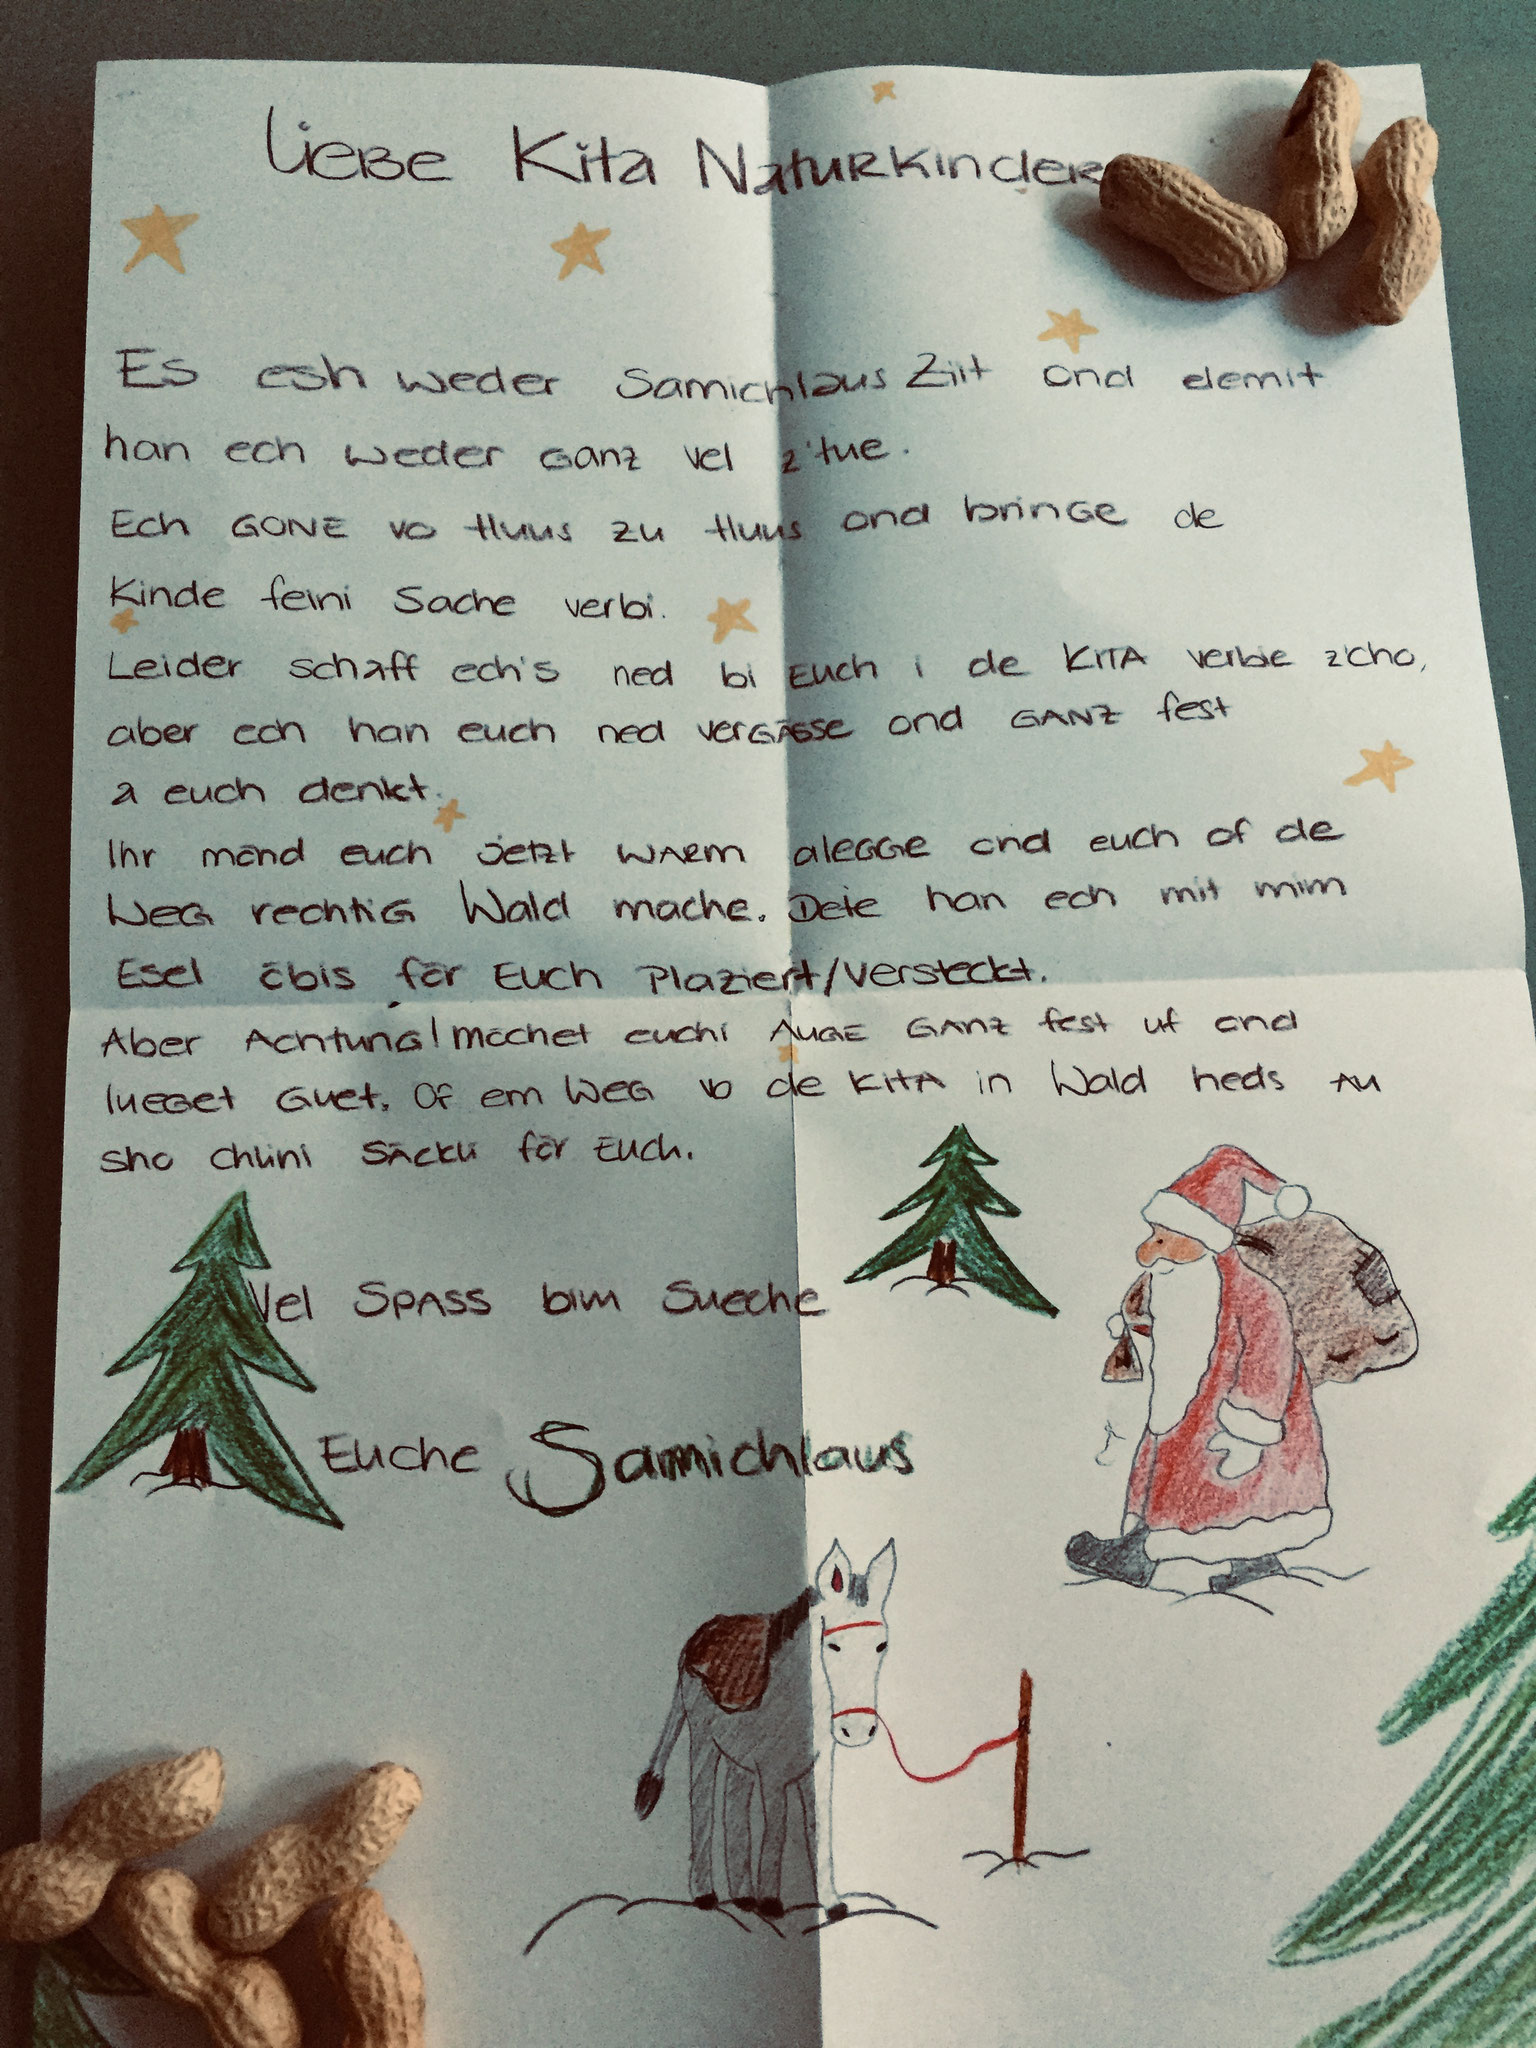 Liebe Kita Naturkinder
Es esh weder Samichlaus Ziit ond demit
han ech weder ganz vel z'tue.
Ech gone vo Huus zu Huus ond bringe de
Kinde feini Sache verbi.
Leider schaff ech's ned bi Euch i de KITA verbie z'cho,
aber ech han euch ned vergässe ond GANZ fest
a euch denkt.
Ihr mönd euch jetzt warm alegge ond euch of de
Weg rechtig Wald mache. Dete han ech mit mim
Esel öbis för Euch Plaziert/Versteckt.
Aber Achtung! Möchet euchi Auge GANZ fest uf ond
lueget Guet. Of em Weg vo de KITA in Wald heds au
sho chliini Säckli för Euch.
Vel Spass bim Sueche
Euche Samichlaus